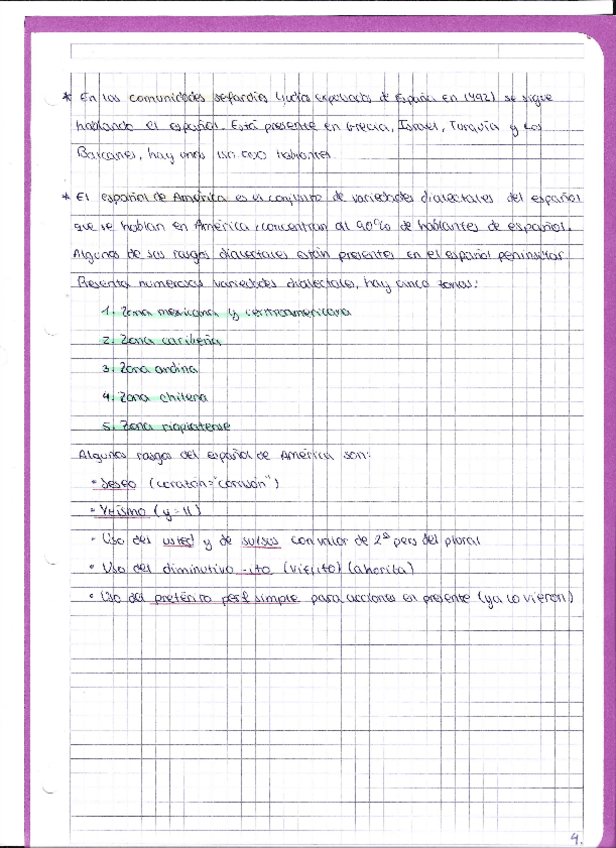 * En las comunidades sefardíes (judíos expulsados de España en 1492) se sigue
hablando el español. Está presente en Grecia, Israel, Turquía y los
Balcanes, hay unos habitantes.
* El español de América es el conjunto de variedades dialectales del español
que se hablan en América, concentran al 90% de hablantes de español.
Algunos de sus rasgos dialectales están presentes en el español peninsular.
Presenta numerosas variedades dialectales, hay cinco zonas:
1. Zona mexicana y centroamericana
2. Zona caribeña
3. Zona andina
4. Zona chilena
5. Zona rioplatense
Algunos rasgos del español de América son:
• Seseo (corazón="corasón")
• Yeísmo (y=ll)
• Uso del usted y de con valor de 2ª pers del plural
• Uso del diminutivo -ito (viejito) (ahorita)
• Uso del pretérito perf. simple para acciones en presente (ya lo vieron)
4.